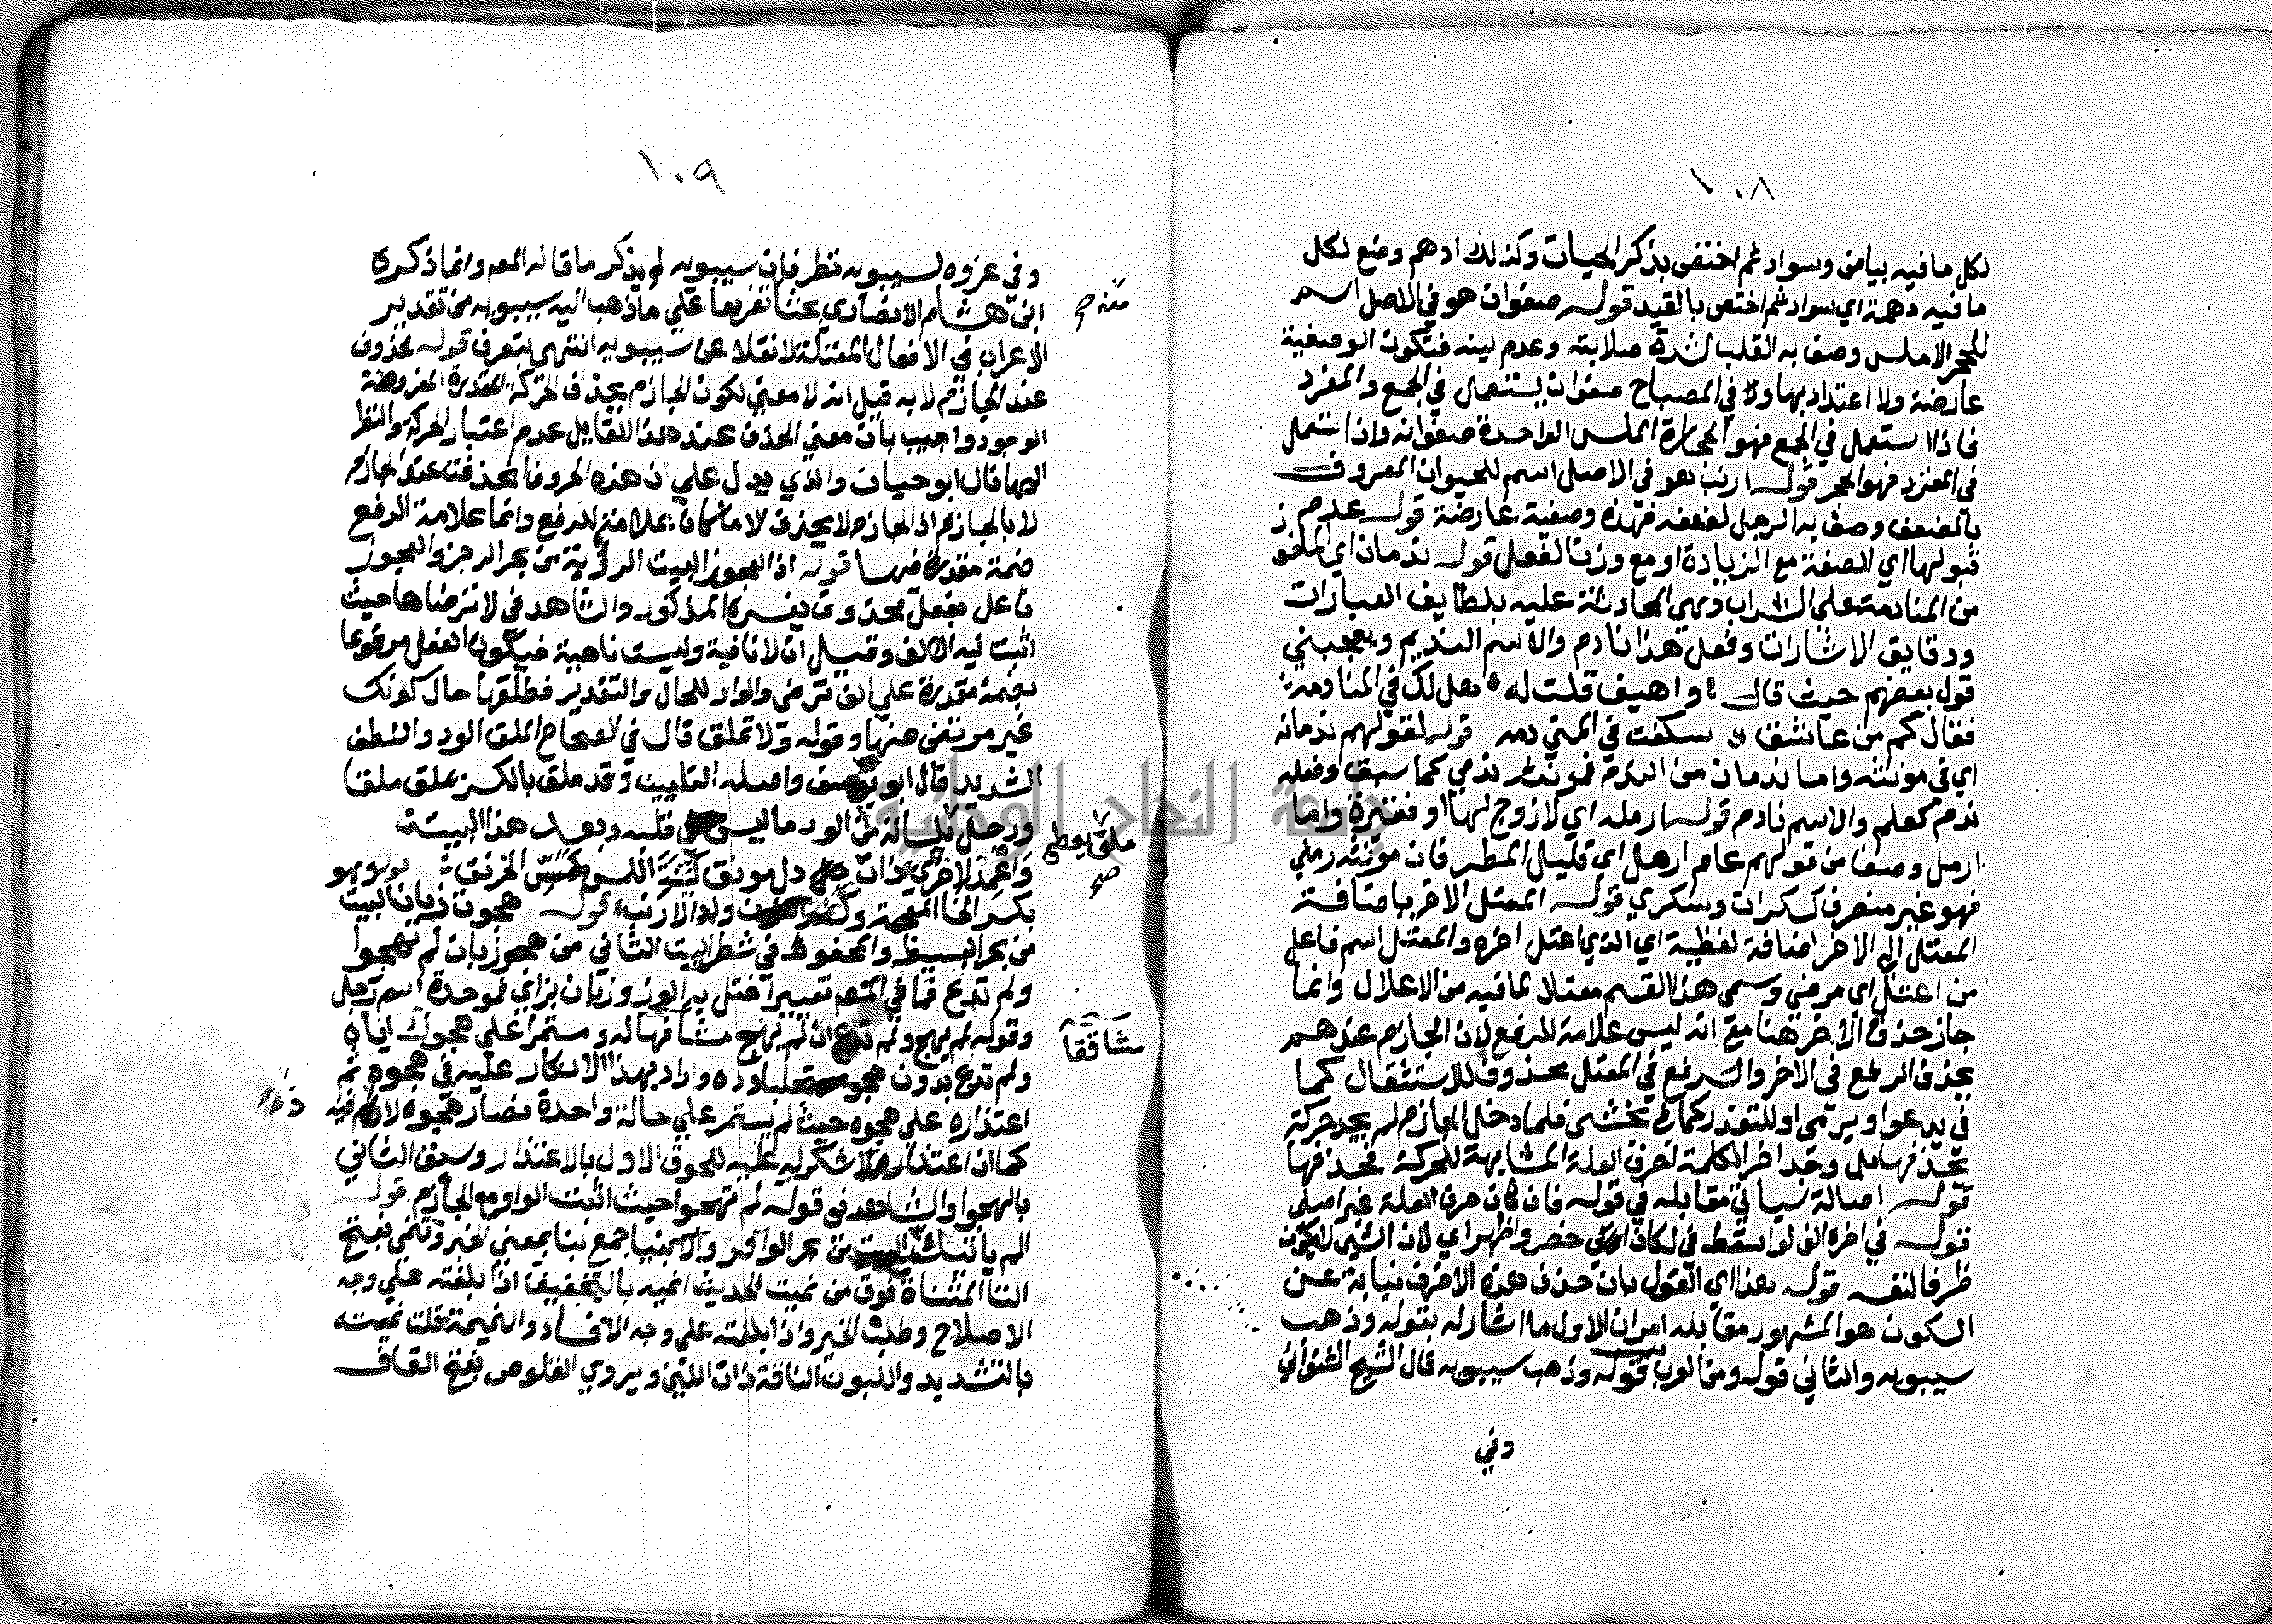 ١٠٨
لكل ما فيه بياض وسواد ثم اختص بذكر الحيات وكذلك ادهم وضع لكل
ما فيه دهمة اي سواد ثم اختص بالقيد قوله صفوان هو في الاصل اسم
للحجر الاملس وصف به القلب لشدة صلابته وعدم لينه فتكون الوصفية
عارضة ولا اعتداد بها و في المصباح صفوان يستعمل في الجمع والمفرد
فاذا استعمل في الجمع فهو الحجارة الملس الواحدة صفوانه واذا استعمل
في المفرد فهو الحجر قوله ارنب هو في الاصل اسم للحيوان المعروف
بالضعف وصف به الرجل لضعفه فهذه وصفية عارضة قوله عدم
قبولها اي الصفة مع الزيادة او مع وزن الفعل قوله ندمان اي
من المنادمة على الشراب وهي المحادثة عليه بلطايف العبارات
ودقايق الاشارات وفعل هذا نادم والاسم النديم ويعجبني
قول بعضهم حيث قال واهيف قلت له هل لك في المنادمة
فقال كم من عاشق سكفت في المنى دمه قوله لقولهم ندمانه
اي في مونثه واما ندمان من الندم فمونثه ندمي كما سبق وفعله
ندم كعلم والاسم نادم قوله ارمله اي لا زوج لها او فقيرة واما
ارمل وصفا من قولهم عام ارمل اي قليل المطر فان مونثه رملي
فهو غير منصرف كسكران وسكري قوله المعتل الاخر باضافة
المعتل الى الاخر اضافة لفظية اي الذي اعتل اخره والمعتل اسم فاعل
من اعتل اي مرض وسمي هذا القسم معتلا لما فيه من الاعلال وانما
جاز حذف الاخر هنا مع انه ليس علامة للرفع لان الجازم عندهم
يحذف الرفع في الاخر والرفع في المعتل محذوف للاستثقال كما
في يدعوا ويرمي او للتعذر كما في يخشى فلما دخل الجازم لم يجد حركة
يحذفها بل وجد اخر الكلمة احرف العلة المشابهة للحركة فحذفها
قوله اصالة سياتي مقابله في قوله فان كان حرف العلة غير اصلي
قوله في اخره الف لو اسقط في لكان اخصر واظهر اي لان الشيء لا يكون
ظرفا لنفسه قوله هذا اي القول بان حذف هذه الاحرف نيابة عن
السكون هو المشهور مقابله امران الاول ما اشار له بقوله وذهب
سيبويه والثاني قوله ومثالوب قوله وذهب سيبويه قال الشيخ الشنواني
وفي
١٠٩
وفي عزوه لسيبويه نظر فان سيبويه لم يذكر ما قاله المص وانما ذكره
ابن هشام الانصاري بحثا تفريعا على ما ذهب اليه سيبويه من تقدير
الاعراب في الافعال المعتلة لا نقلا عن سيبويه انتهى بتصرف قوله محذوف
عند الجازم لا به قيل انه لا معنى لكون الجازم يحذف الحركة المقدرة المفروضة
الوجود واجيب بان معنى الحذف عند هذا القايل عدم اعتبار الحركة والنظر
اليها قال ابو حيان والذي يدل على ان هذه الحروف انحذفت عند الجازم
لا بالجازم ان الجازم لا يحذف الا ما كان علامة للرفع وانما علامة الرفع
ضمة مقدرة فيها قوله اذا العجوز البيت الرؤبة من بحر الرجز والعجوز
فاعل بفعل محذوف يفسره المذكور والشاهد في لا ترضاها حيث
اثبت فيه الالف وقيل ان لا نافية وليست ناهية فيكون الفعل مرفوعا
بضمة مقدرة على الف ترضى والواو للحال والتقدير فطلقها حال كونك
غير مرتضى عنها وقوله ولا تملق قال في الصحاح الملق الود واللطف
الشديد قال ابو يوسف واصله التليين وقد ملق بالكسر يملق ملقا
ورجل بلسانه من الود ما ليس في قلبه وبعد هذا البيت
واعمد لاخري ذات دل مونق لينة اللمس كمس الخرنق وهو
بكسر الخا المعجمة ولد الارنب قوله هجوت زبان البيت
من بحر البسيط والمحفوظ في شطر البيت الثاني من هجو زبان لم تهجوا
ولم تدع فما في المص تغيير اختل به الوزن وزبان بزاي فموحدة اسم رجل
وقوله لم يهج ولم تدع ان لم يهج مشافها له ومستمرا على هجوك اياه
ولم تدع بدون هجو واراد بهذا الانكار عليه في هجوه ثم
اعتذاره على هجوه حيث لم يستمر على حالة واحدة فصار هجوه لا
كما ان اعتذاره لا شكر له عليه للحوق الاول بالاعتذار وسبق الثاني
بالهجو والشاهد في قوله لم تهجوا حيث اثبت الواو مع الجازم قوله
الم ياتيك البيت من بحر الوافر والانبيا جمع نبا بمعنى الخبر وتنمى بفتح
التا المثناة فوق من نميت الحديث انميه بالتخفيف اذا بلغته على وجه
الاصلاح وطلب الخير واذا بلغته على وجه الافساد والنميمة قلت نميته
بالتشديد واللبون الناقة ذات اللبن ويروي القلوص بفتح القاف
ملق يعطي
صح
مشافها